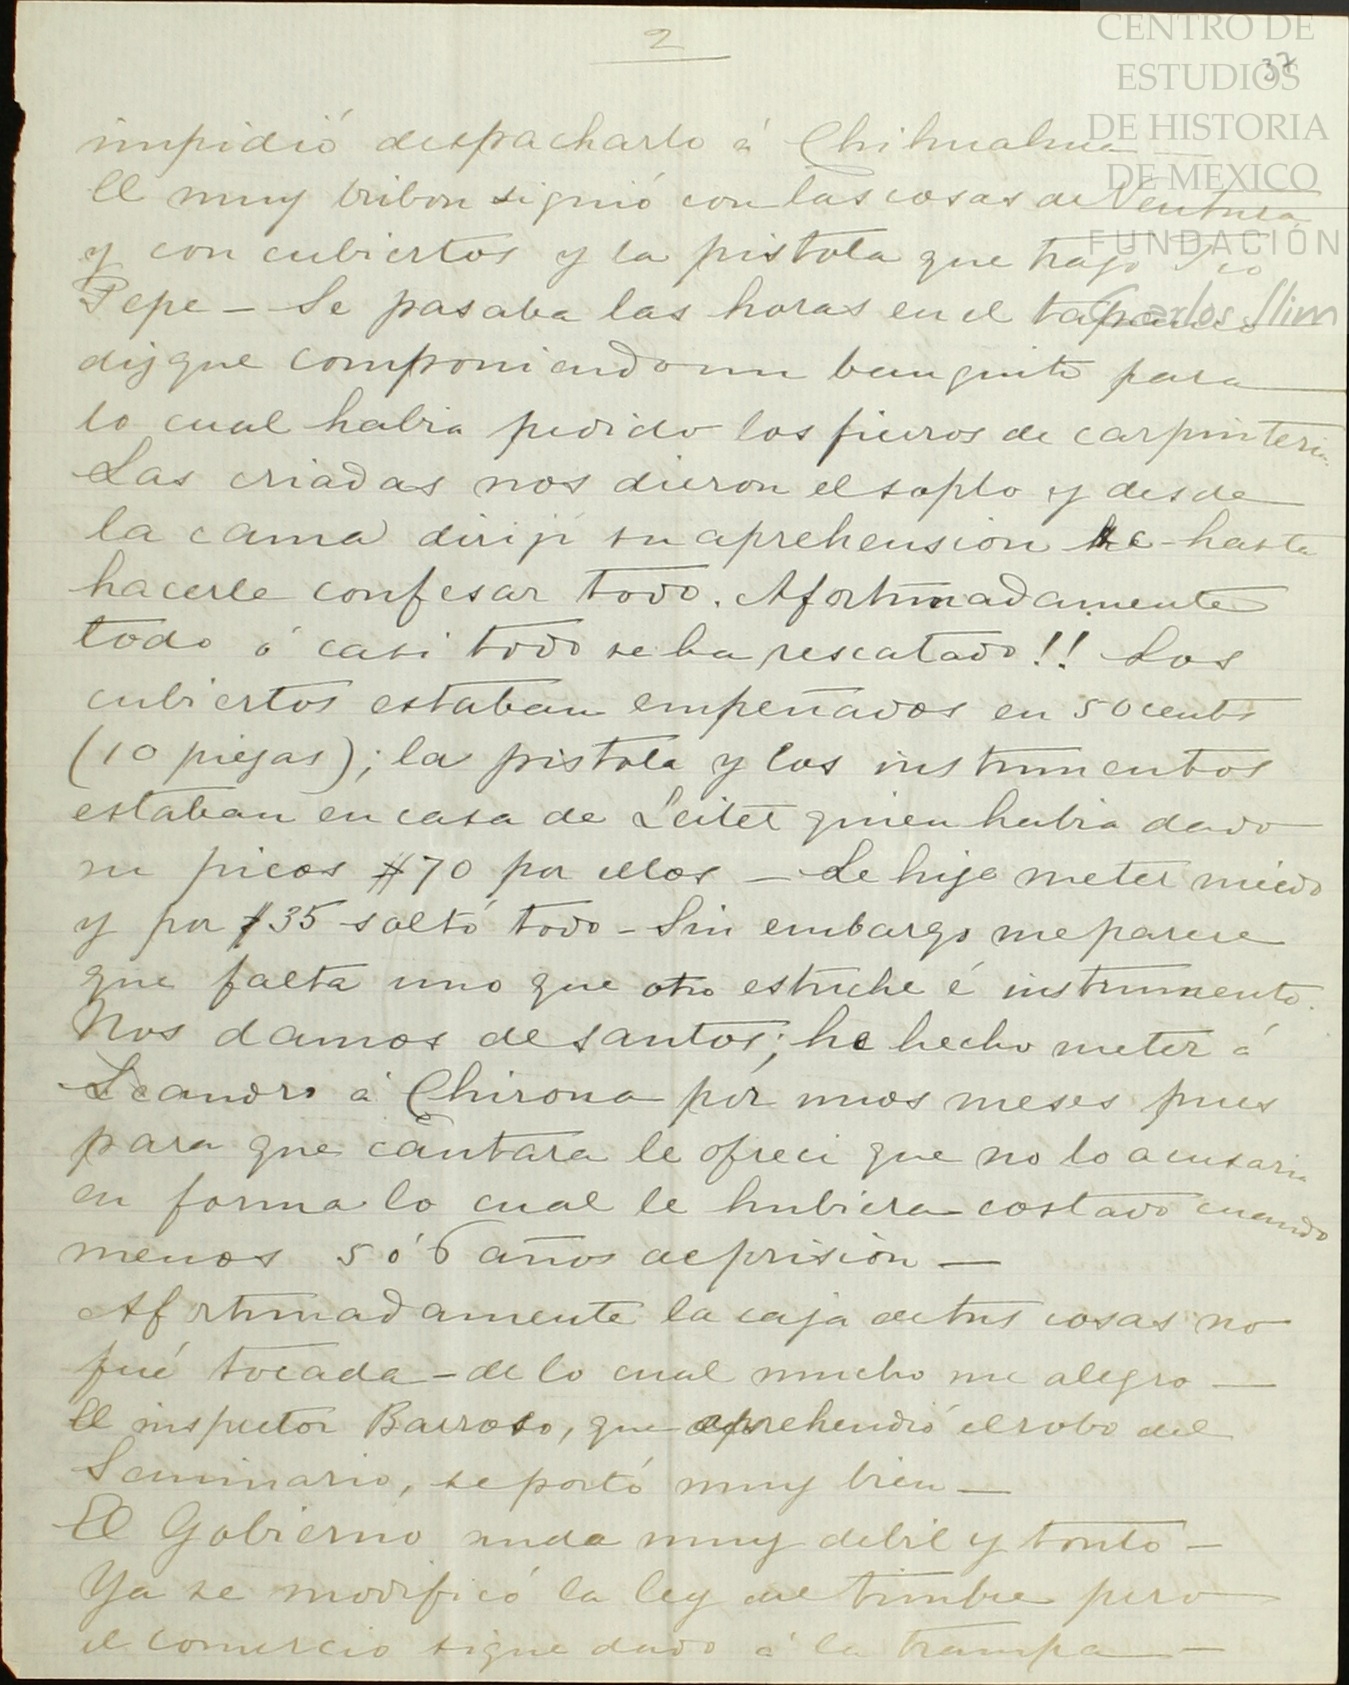 2
37
CENTRO DE
ESTUDIOS
DE HISTORIA
DE MEXICO
FUNDACIÓN
Carlos Slim
impidió despacharlo á Chihuahua —
El muy bribon siguió con las cosas de Ventura
y con cubiertos y la pistola que trajo Tio
Pepe — Se pasaba las horas en el tapanco
dizque componiendo un banquito para
lo cual habia pedido los fierros de carpinteria.
Las criadas nos dieron el soplo y desde
la cama diriji su aprehension hasta
hacerle confesar todo. Afortunadamente
todo ó casi todo se ha rescatado!! Los
cubiertos estaban empeñados en 50 cents
(10 piezas); la pistola y los instrumentos
estaban en casa de Leiter quien habia dado
picos $70 por ellos — Le hize meter miedo
y por $35 soltó todo — Sin embargo me parece
que falta uno que otro estuche é instrumento.
Nos damos de santos; he hecho meter á
Leandro á Chirona por unos meses pues
para que cantara le ofreci que no lo acusaria
en forma lo cual le hubiera costado cuando
menos 5 ó 6 años de prision —
Afortunadamente la caja de tus cosas no
fué tocada — de lo cual mucho me alegro —
El inspector Barroso, que aprehendió el robo del
Seminario, se portó muy bien —
El Gobierno anda muy debil y tonto —
Ya se modificó la ley del timbre pero
el comercio sigue dado á la trampa —